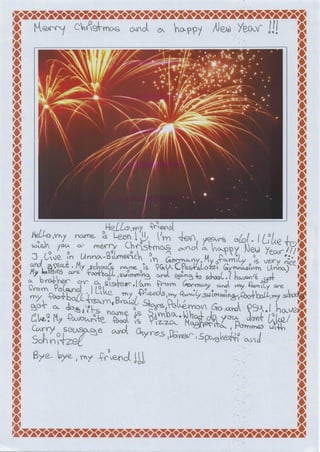 Merry Christmas and a happy New Year !!!
Hello, my friend
Hello, my name is Leon!!! I'm ten years old. I like to
wish you a merry Christmas and a happy New Year!!!
I live in Unna-Billmerich in Germany. My family is very nice
and great. My school's name is PGU (Pestalozzi Gymnasium Unna)
My hobbies are football, swimming and going to school. I haven't got
a brother or a sister. I am from Germany and my family are
from Poland. I like my friends, my family, swimming, football, my school
my football team, Brawl Stars, Pokémon Go and PSG. I have
got a dog, it's name is Simba. What do you don't like/
like? My favourite food is Pizza Magherita, Pommes with
Curry sausage and Gyros, Döner, Spaghetti and
Schnitzel
Bye bye, my friend!!!